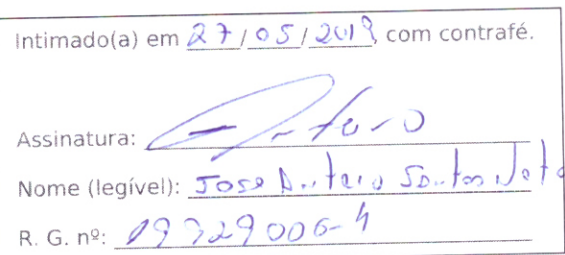 Intimado(a) em 27/05/2019, com contrafé.
Assinatura:
Nome (legível): Jose Antero Santos Neto
R. G. nº: